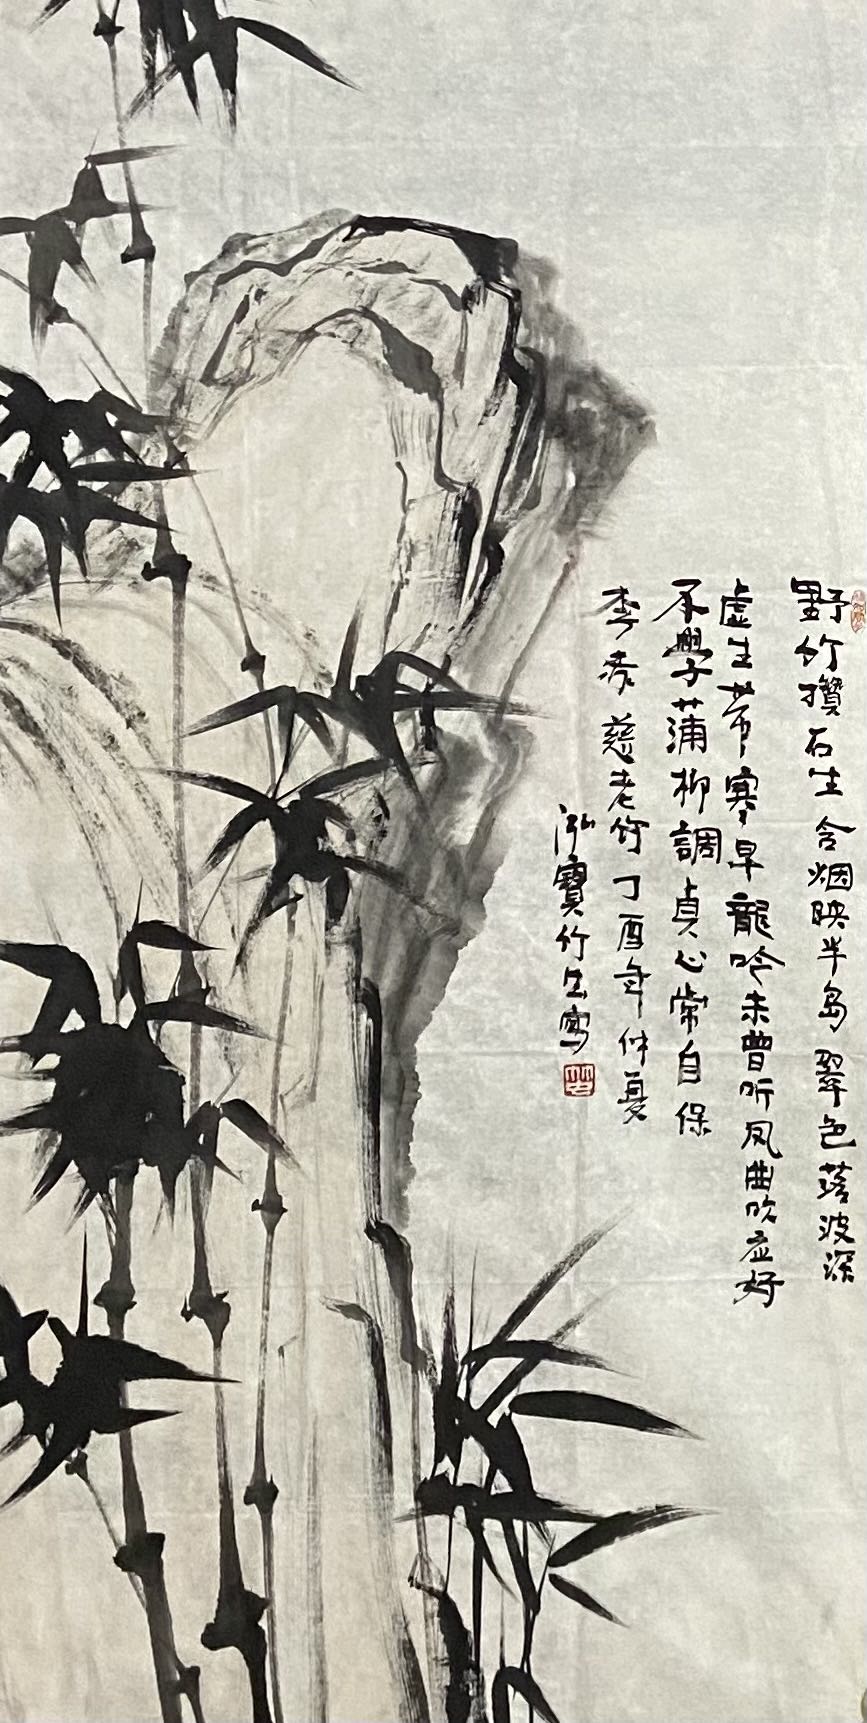 野竹攢石生含烟映半岛翠色落波深
虚生带寒早龍吟未曾听凤曲吹应好
不學蒲柳調貞心常自保
李慈老竹丁酉年仲夏
泓寶竹生寫